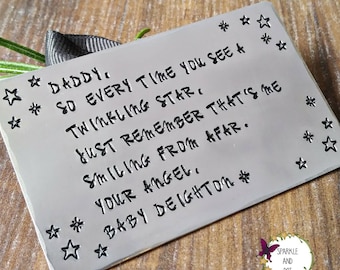 DADDY,
SO EVERY TIME YOU SEE A
TWINKLING STAR,
JUST REMEMBER THAT'S ME
SMILING FROM AFAR.
YOUR ANGEL,
BABY DEIGHTON
SPARKLE
AND